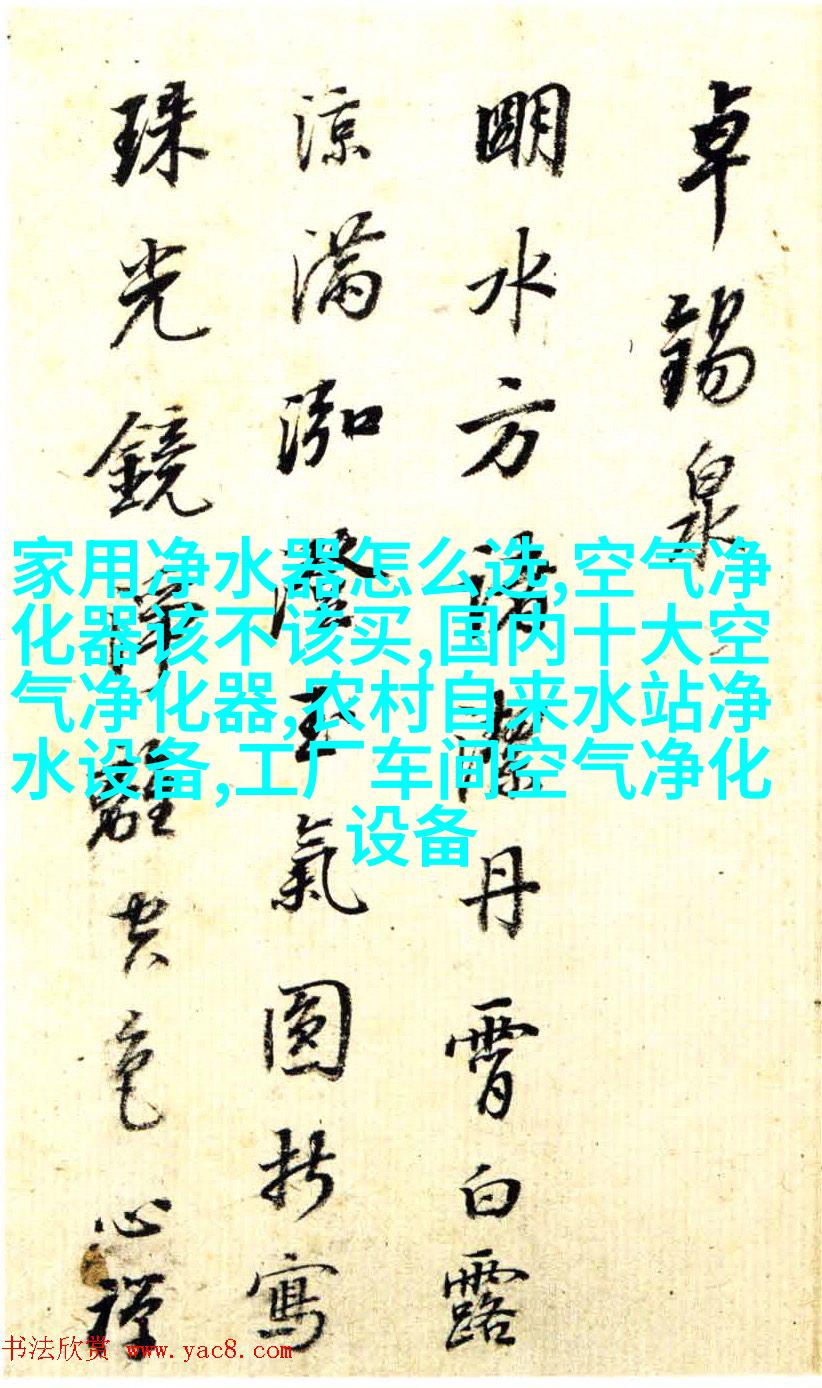 卓錫泉
明水方潔丹霄白露
涼滿泓澄玉氣圓折寫
珠光鏡難共色心禪
家用净水器怎么选,空气净
化器该不该买,国内十大空
气净化器,农村自来水站净
水设备,工厂车间空气净化
设备
书法欣赏 www.yac8.com